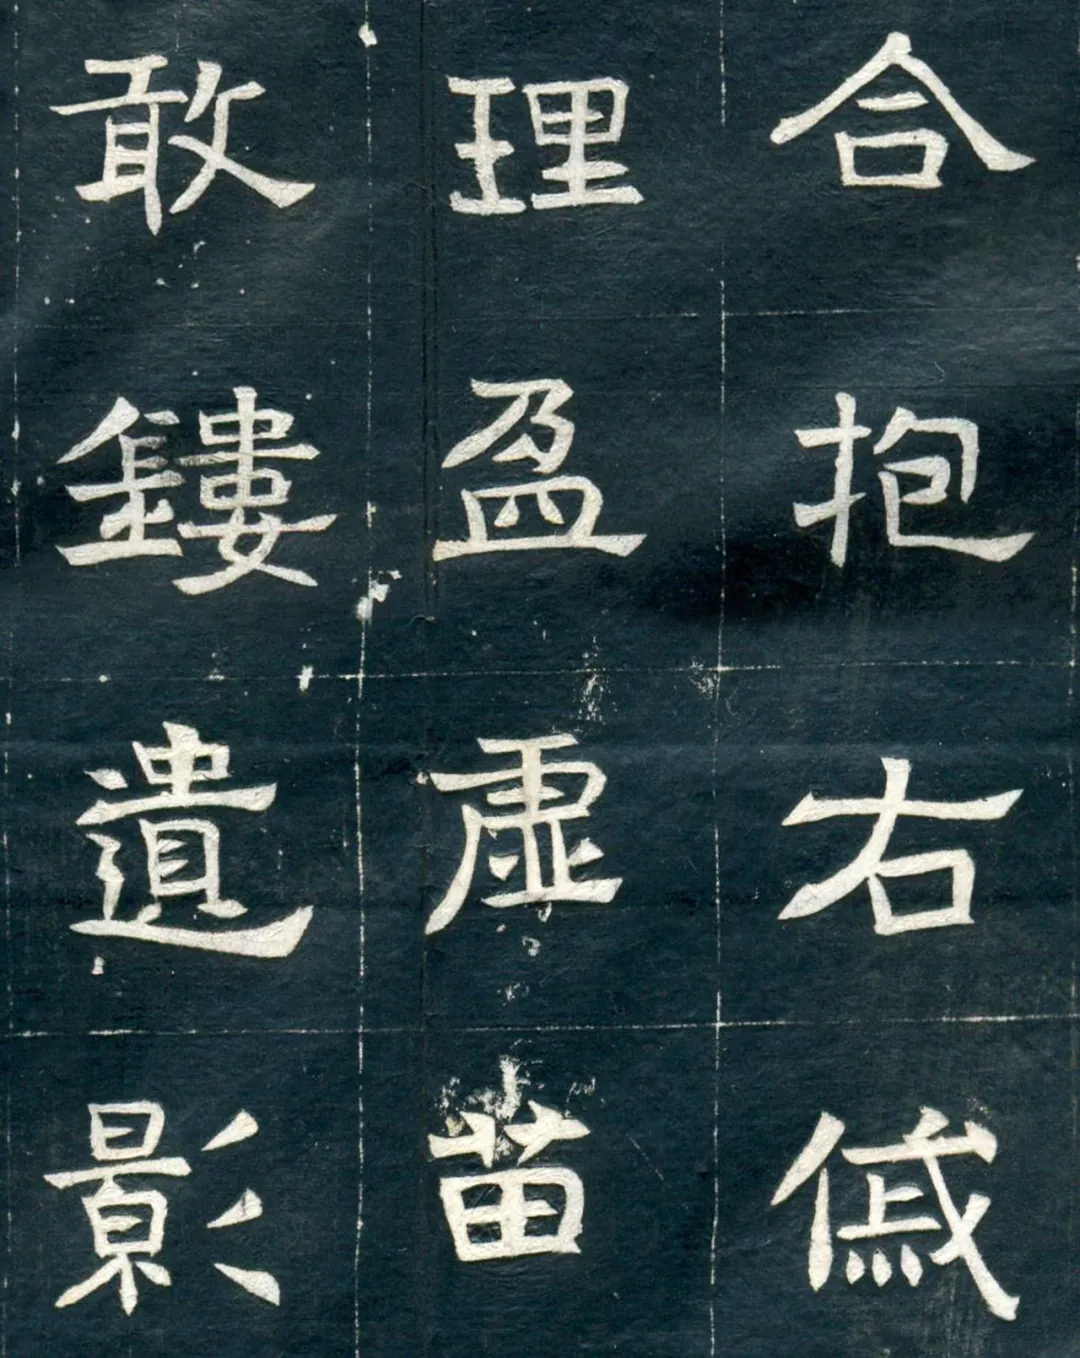 合抱右傶
理盈虚苗
敢鏤遺影